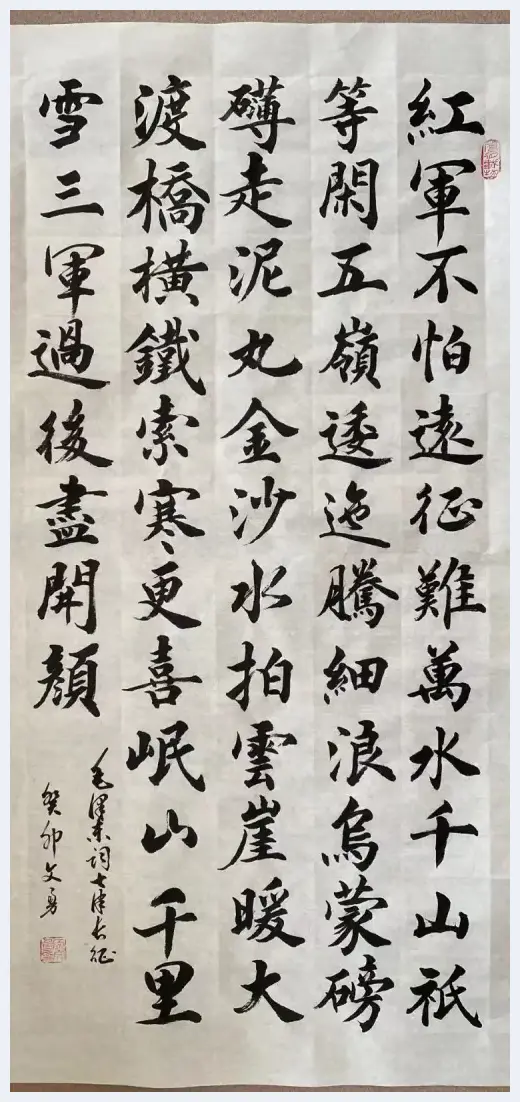 紅軍不怕遠征難萬水千山祇
等閑五嶺逶迤騰細浪烏蒙磅
礴走泥丸金沙水拍雲崖暖大
渡橋橫鐵索寒更喜岷山千里
雪三軍過後盡開顏
毛澤東詞七律長征
癸卯文勇